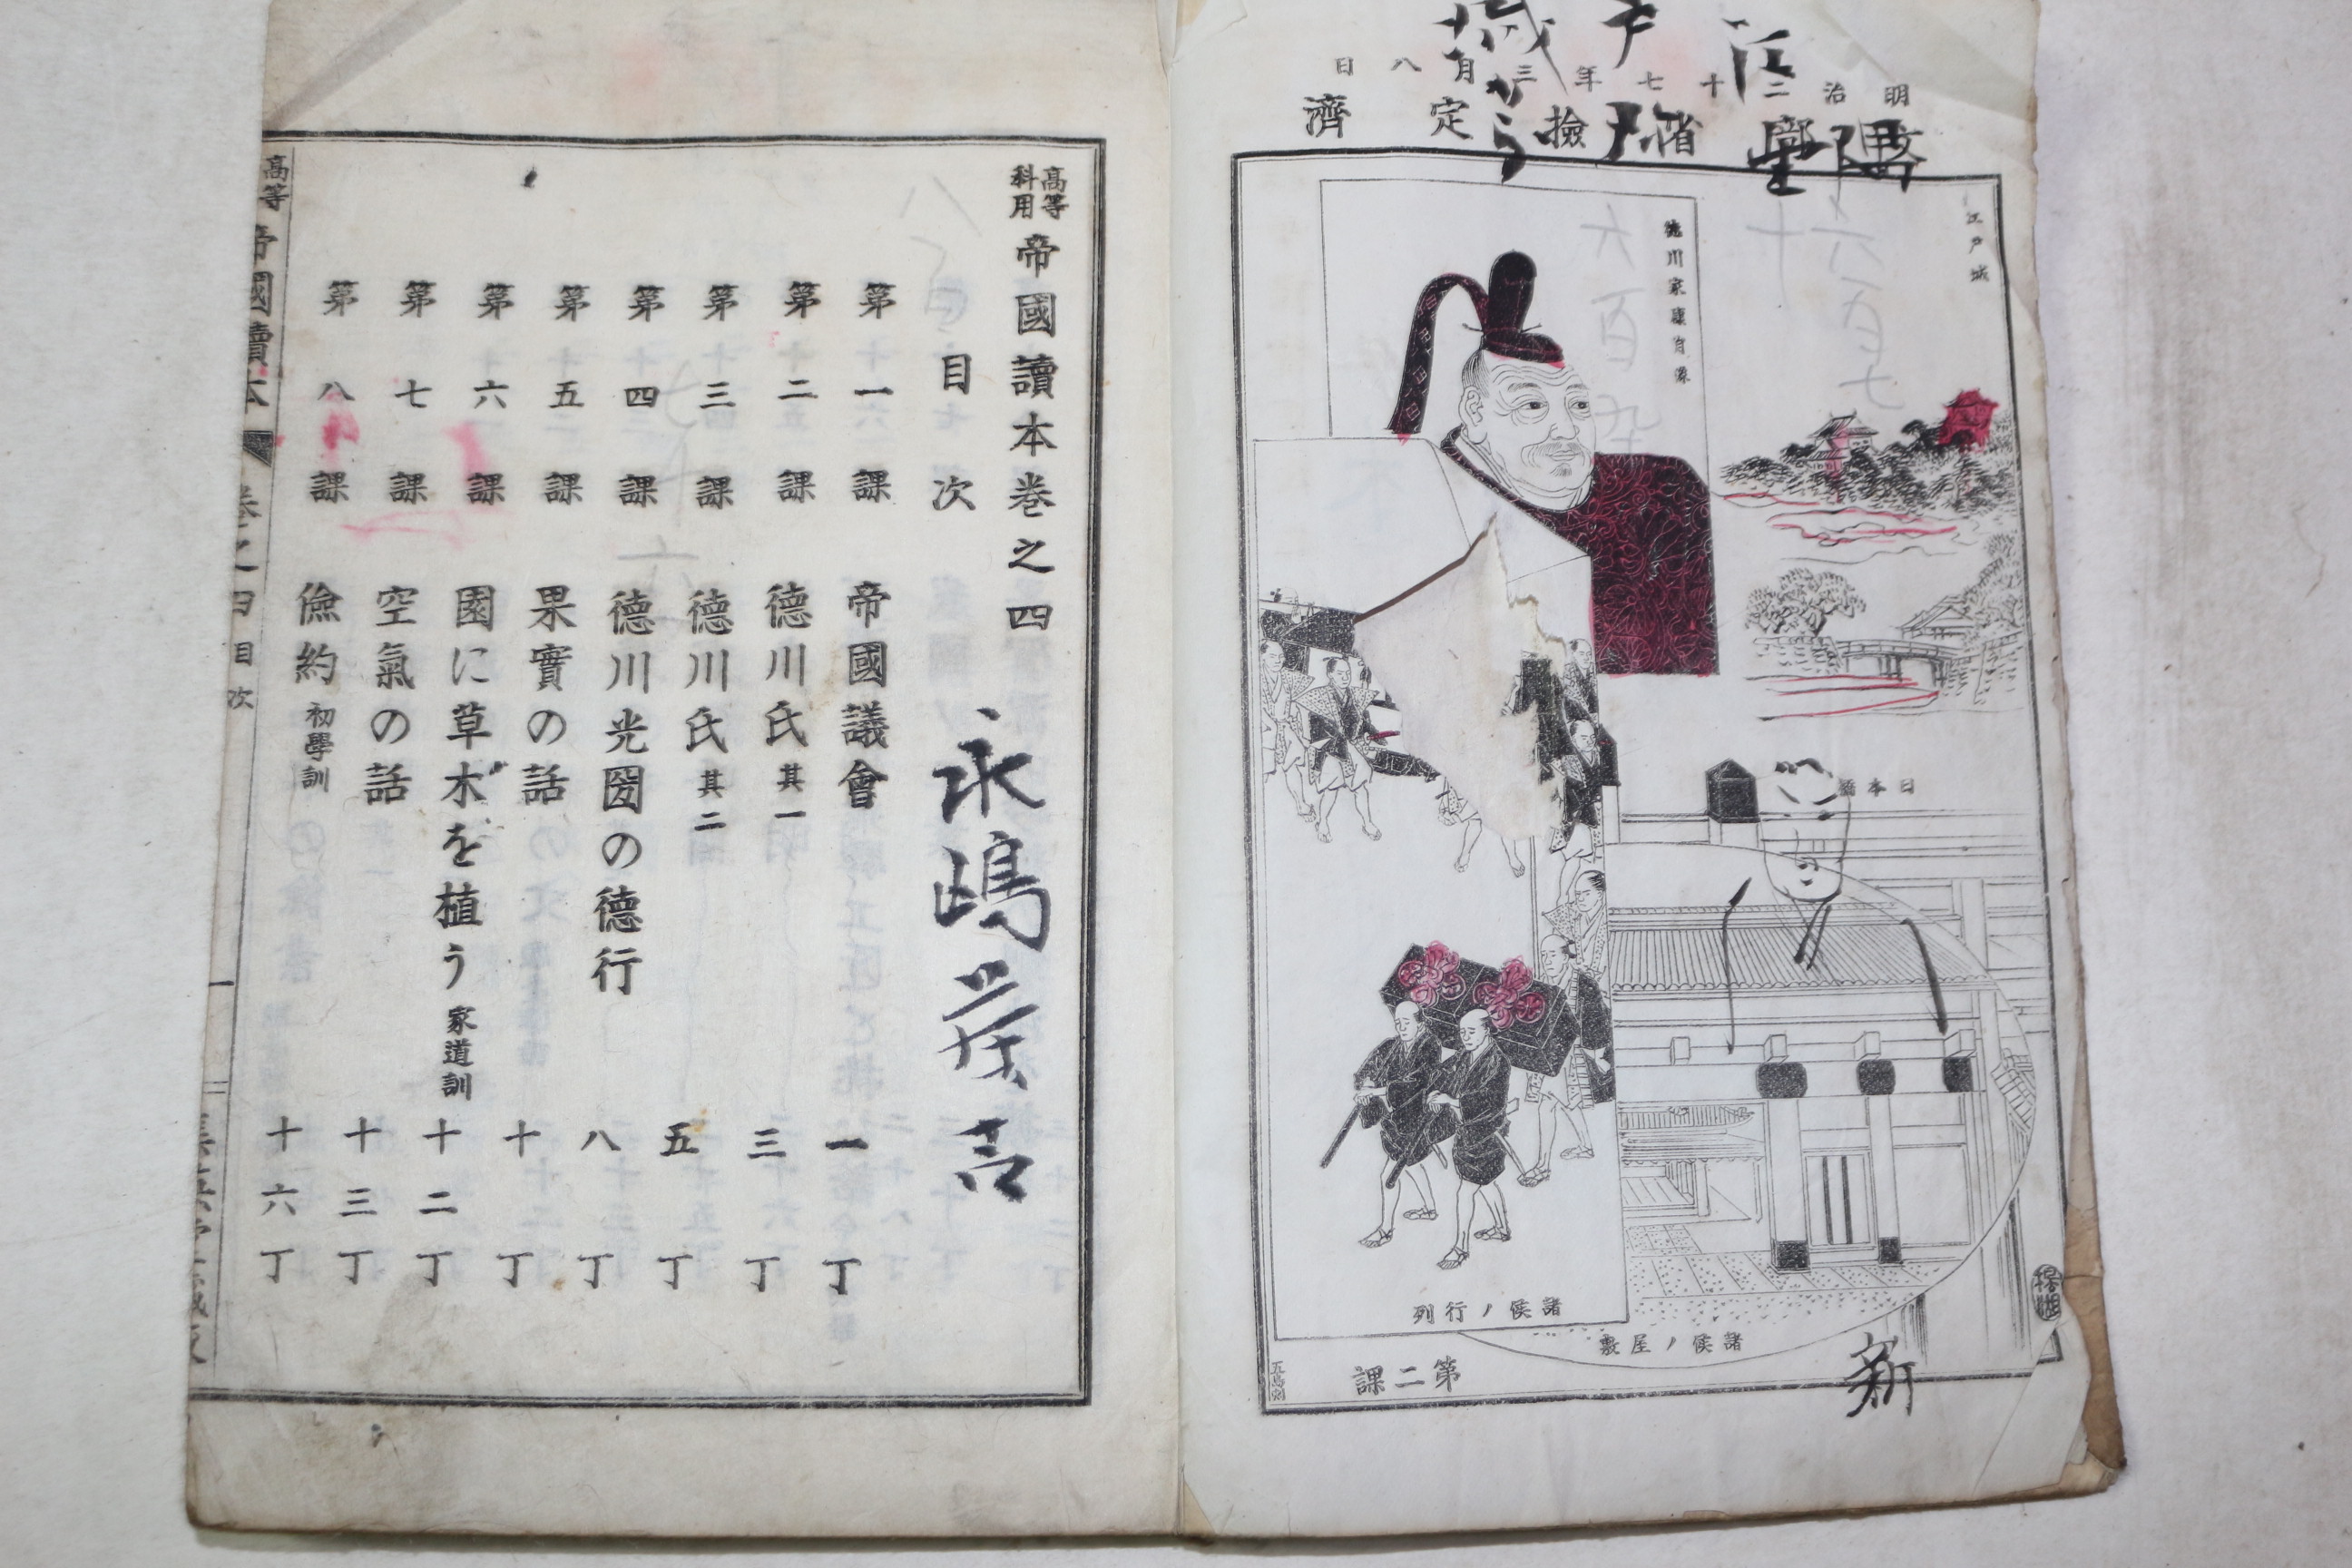 明治二十七年三月八日
文部省檢定濟
江戶城
德川家康肖像
日本橋
諸侯ノ行列
諸侯ノ屋敷
第二課
新
高等科用
帝國讀本卷之四
目次
第一課 帝國議會 一丁
第二課 德川氏 其一 三丁
第三課 德川氏 其二 五丁
第四課 德川光圀の德行 八丁
第五課 果實の話 十丁
第六課 園に草木を植う 家道訓 十二丁
第七課 空氣の話 十三丁
第八課 儉約 初學訓 十六丁
高等 帝國讀本 卷之四 目次 一